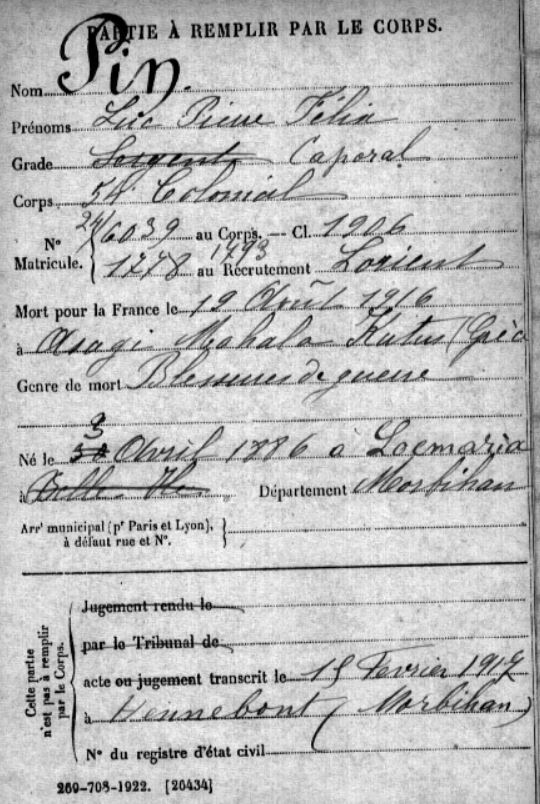 PARTIE À REMPLIR PAR LE CORPS.
Nom Pin.
Prénoms Luc Pierre Félix
Grade Sergent Caporal
Corps 54e Colonial
N° Matricule. 24/6039 au Corps. — Cl. 1906
1778 1793 au Recrutement Lorient
Mort pour la France le 19 Août 1916
à Asagi Mahala Kutus (Grèc
Genre de mort Blessures de guerre
3
Né le Avril 1886 à Locmaria
à Belle-Ile Département Morbihan
Arrt municipal (pr Paris et Lyon),
à défaut rue et N°.
Cette partie n'est pas à remplir par le Corps.
Jugement rendu le
par le Tribunal de
acte ou jugement transcrit le 15 Fevrier 1917
à Hennebont (Morbihan)
N° du registre d'état civil
269-708-1922. [26434]